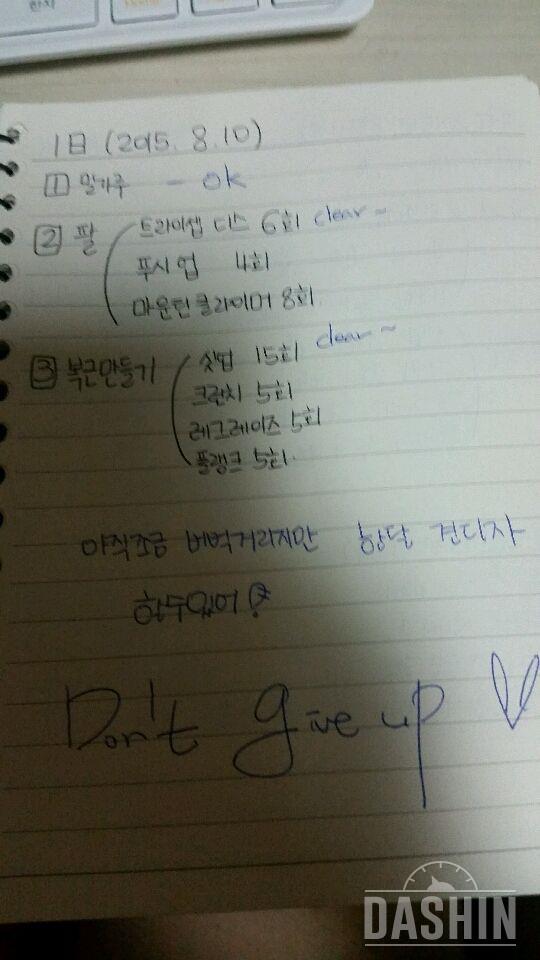 한자
1日 (2015. 8. 10)
1 밀가루 - ok
2 팔 트라이셉 디스 6회 clear~
푸시업 4회
마운틴클라이머 8회
3 복근만들기 싯업 15회 clear~
크런치 5회
레그레이즈 5회
플랭크 5회
아직조금 버벅거리지만 한달 견디자
할수있어!
Don't give up ♡
DASHIN